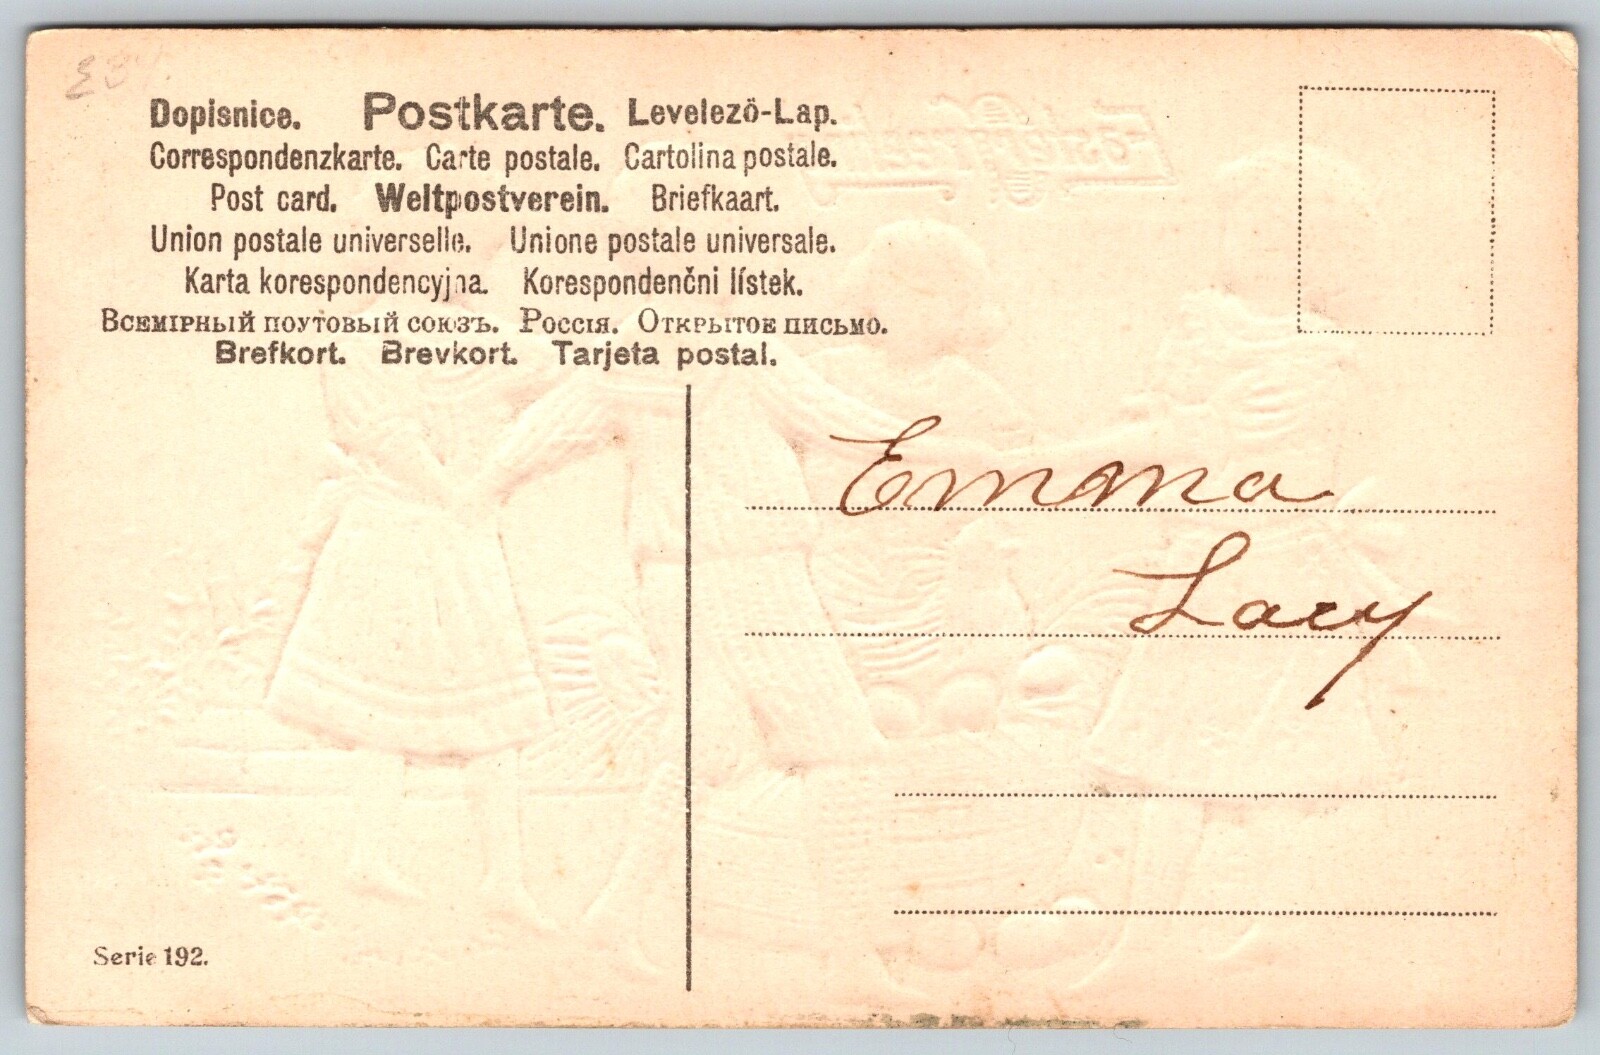 Dopisnice. Postkarte. Levelező-Lap.
Correspondenzkarte. Carte postale. Cartolina postale.
Post card. Weltpostverein. Briefkaart.
Union postale universelle. Unione postale universale.
Karta korespondencyjna. Korespondenčni lístek.
Всемірный поутовый союзъ. Россія. Открытое письмо.
Brefkort. Brevkort. Tarjeta postal.
Emma
Lacy
Serie 192.